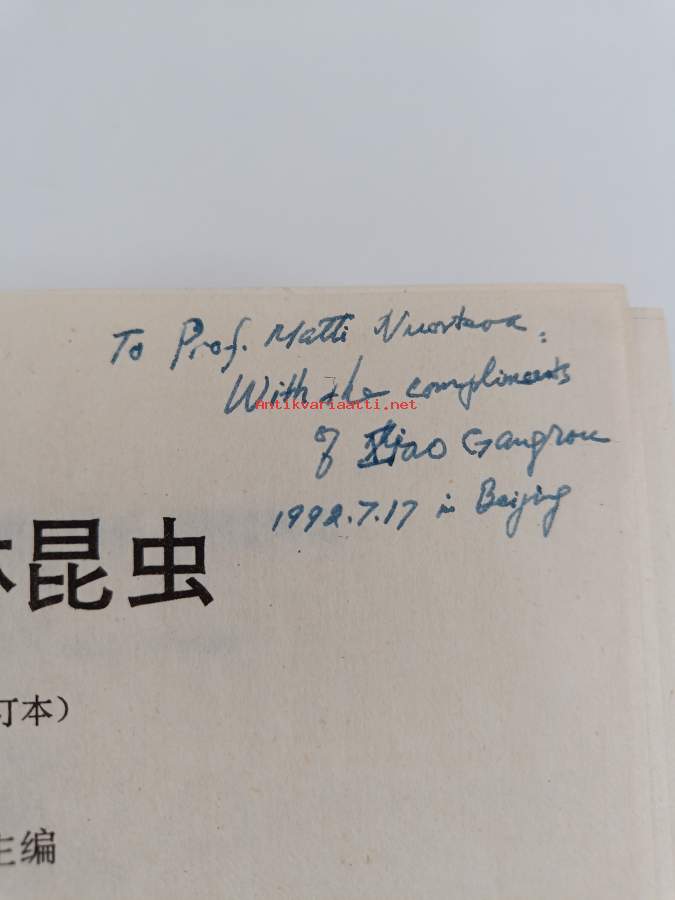 To Prof. Matti Nuorteva.
With the compliments
Antikvariaatti.net
of Xiao Gangrou
1992.7.17 in Beijing
林昆虫
订本)
主编